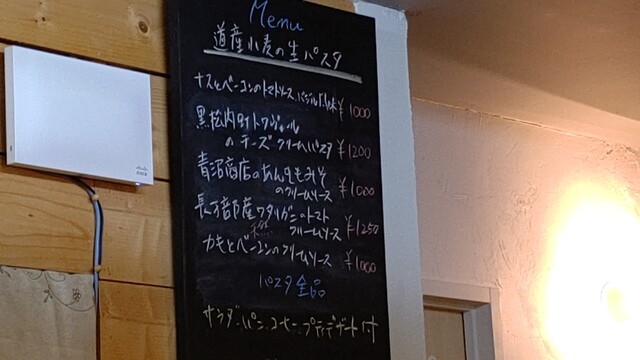 Menu
道産小麦の生パスタ
ナスとベーコンのトマトソース、バジル風味 ¥1000
黒松内
のチーズクリームパスタ ¥1200
青沼商店のあんきもみそ
のクリームソース ¥1000
長万部産ワタリガニのトマト
クリームソース ¥1250
カキとベーコンのクリームソース ¥1000
パスタ全品
サラダ、パン、コーヒー、プティデザート付